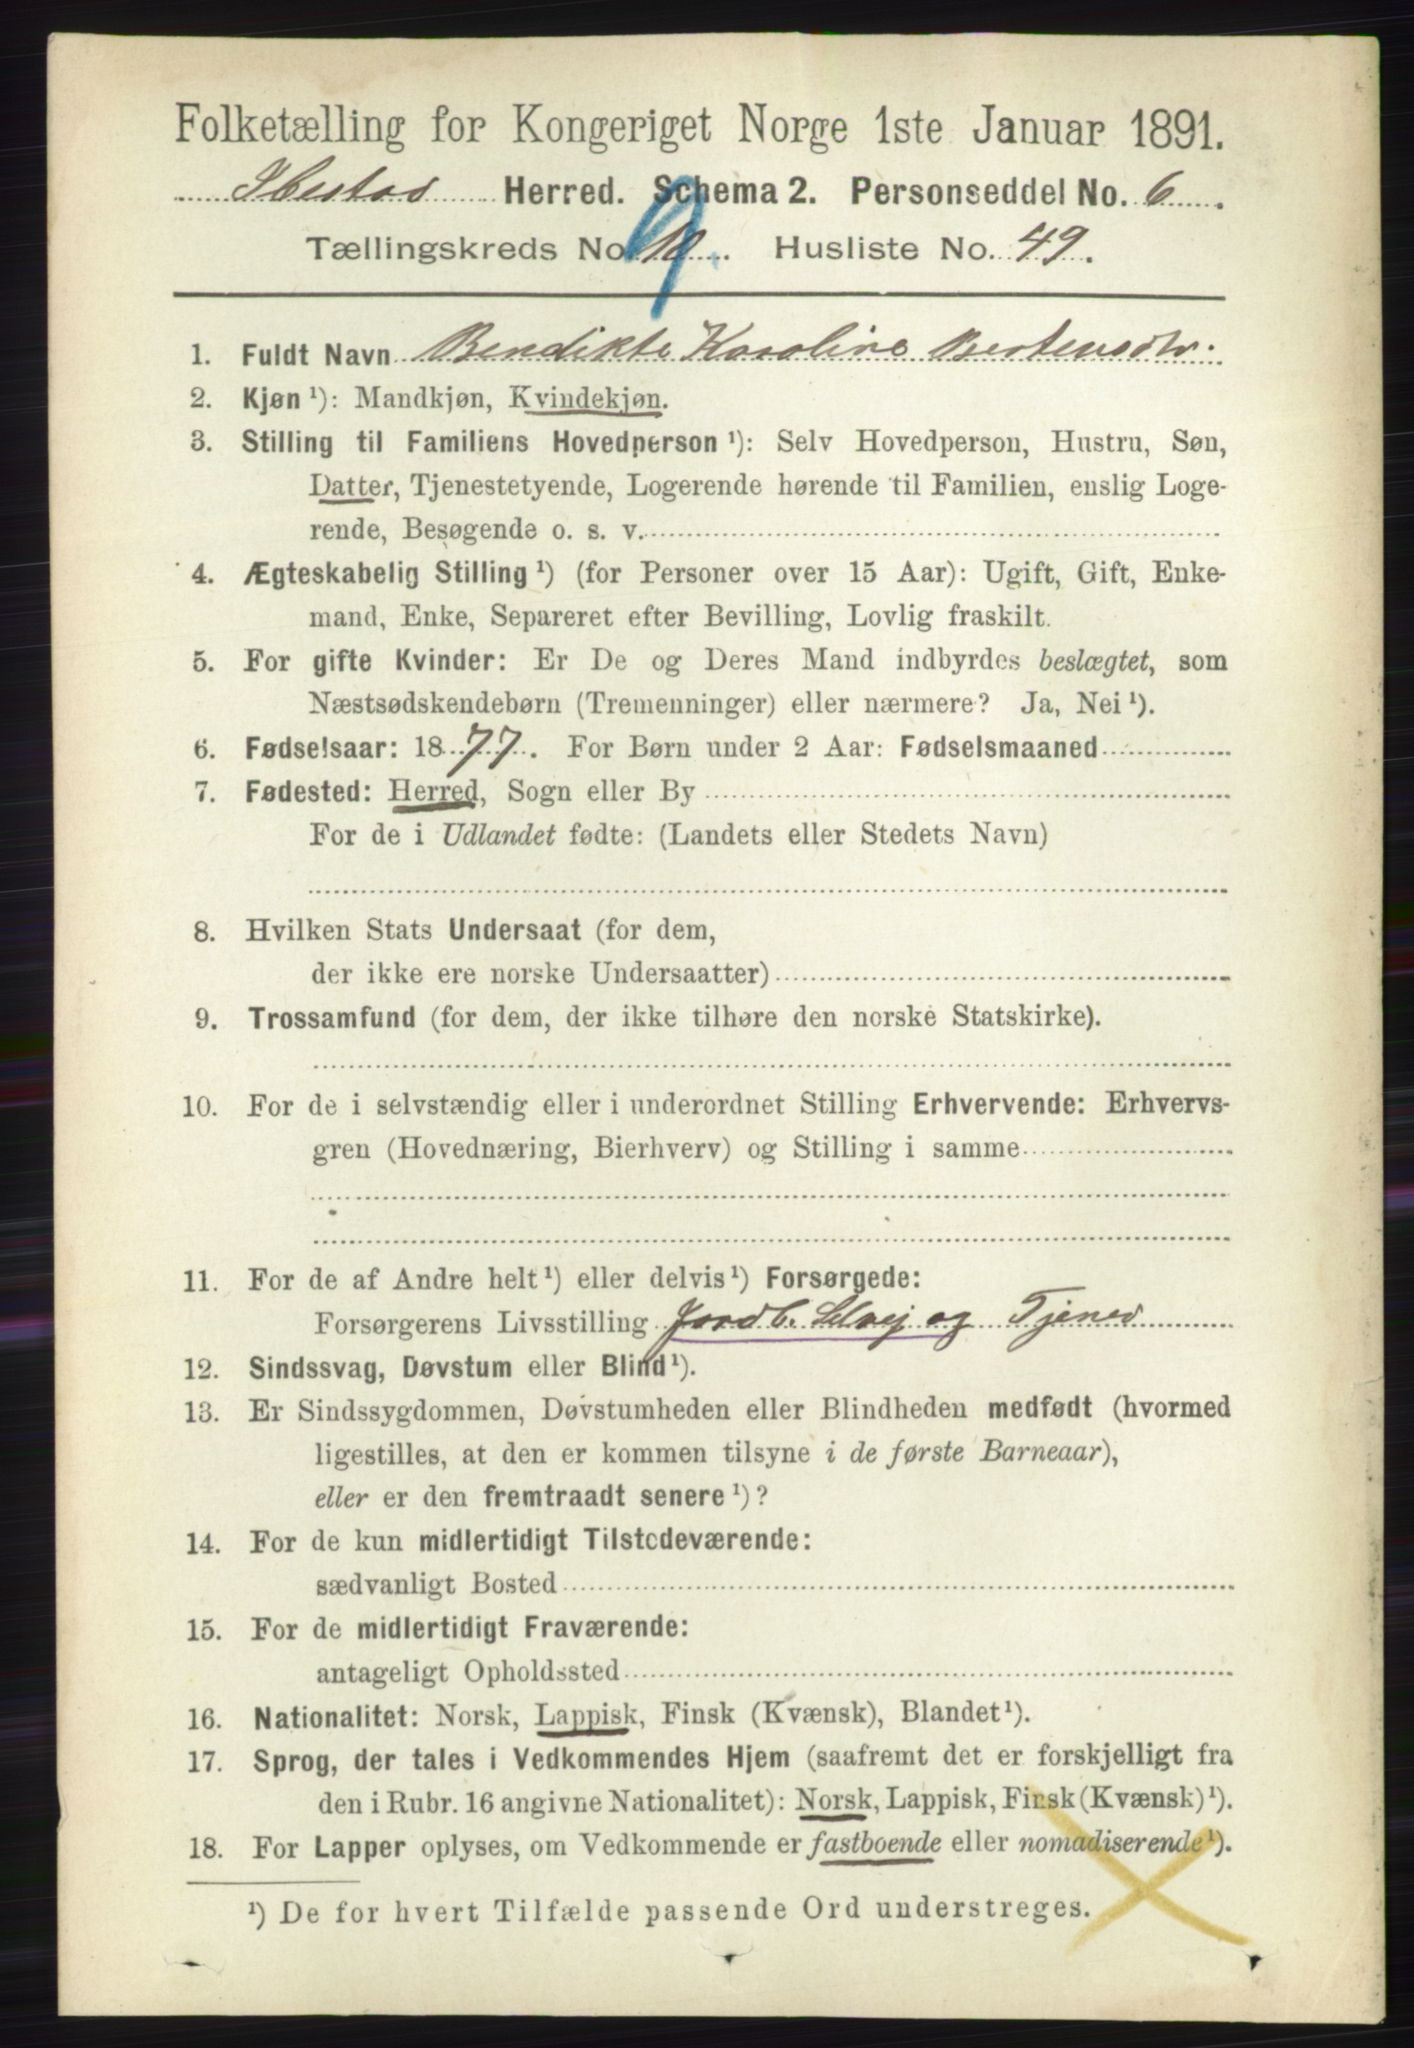 Folketælling for Kongeriget Norge 1ste Januar 1891.
Ibestad Herred. Schema 2. Personseddel No. 6.
Tællingskreds No. 10. 9. Husliste No. 49.
1. Fuldt Navn Bendikte Karoline Bertensdtr.
2. Kjøn ¹): Mandkjøn, Kvindekjøn.
3. Stilling til Familiens Hovedperson ¹): Selv Hovedperson, Hustru, Søn,
Datter, Tjenestetyende, Logerende hørende til Familien, enslig Loge-
rende, Besøgende o. s. v.
4. Ægteskabelig Stilling ¹) (for Personer over 15 Aar): Ugift, Gift, Enke-
mand, Enke, Separeret efter Bevilling, Lovlig fraskilt.
5. For gifte Kvinder: Er De og Deres Mand indbyrdes beslægtet, som
Næstsødskendebørn (Tremenninger) eller nærmere? Ja, Nei ¹).
6. Fødselsaar: 1877. For Børn under 2 Aar: Fødselsmaaned
7. Fødested: Herred, Sogn eller By
For de i Udlandet fødte: (Landets eller Stedets Navn)
8. Hvilken Stats Undersaat (for dem,
der ikke ere norske Undersaatter)
9. Trossamfund (for dem, der ikke tilhøre den norske Statskirke).
10. For de i selvstændig eller i underordnet Stilling Erhvervende: Erhvervs-
gren (Hovednæring, Bierhverv) og Stilling i samme
11. For de af Andre helt ¹) eller delvis ¹) Forsørgede:
Forsørgerens Livsstilling Jordb. Selvej og Tjener
12. Sindssvag, Døvstum eller Blind ¹).
13. Er Sindssygdommen, Døvstumheden eller Blindheden medfødt (hvormed
ligestilles, at den er kommen tilsyne i de første Barneaar),
eller er den fremtraadt senere ¹)?
14. For de kun midlertidigt Tilstedeværende:
sædvanligt Bosted
15. For de midlertidigt Fraværende:
antageligt Opholdssted
16. Nationalitet: Norsk, Lappisk, Finsk (Kvænsk), Blandet ¹).
17. Sprog, der tales i Vedkommendes Hjem (saafremt det er forskjelligt fra
den i Rubr. 16 angivne Nationalitet): Norsk, Lappisk, Finsk (Kvænsk) ¹).
18. For Lapper oplyses, om Vedkommende er fastboende eller nomadiserende ¹).
¹) De for hvert Tilfælde passende Ord understreges.